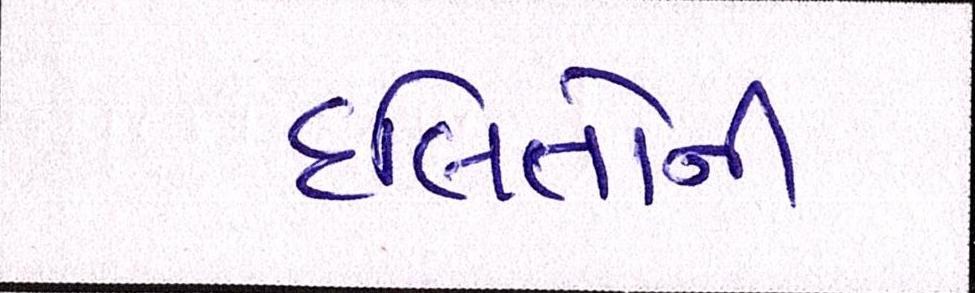 દલિતોની